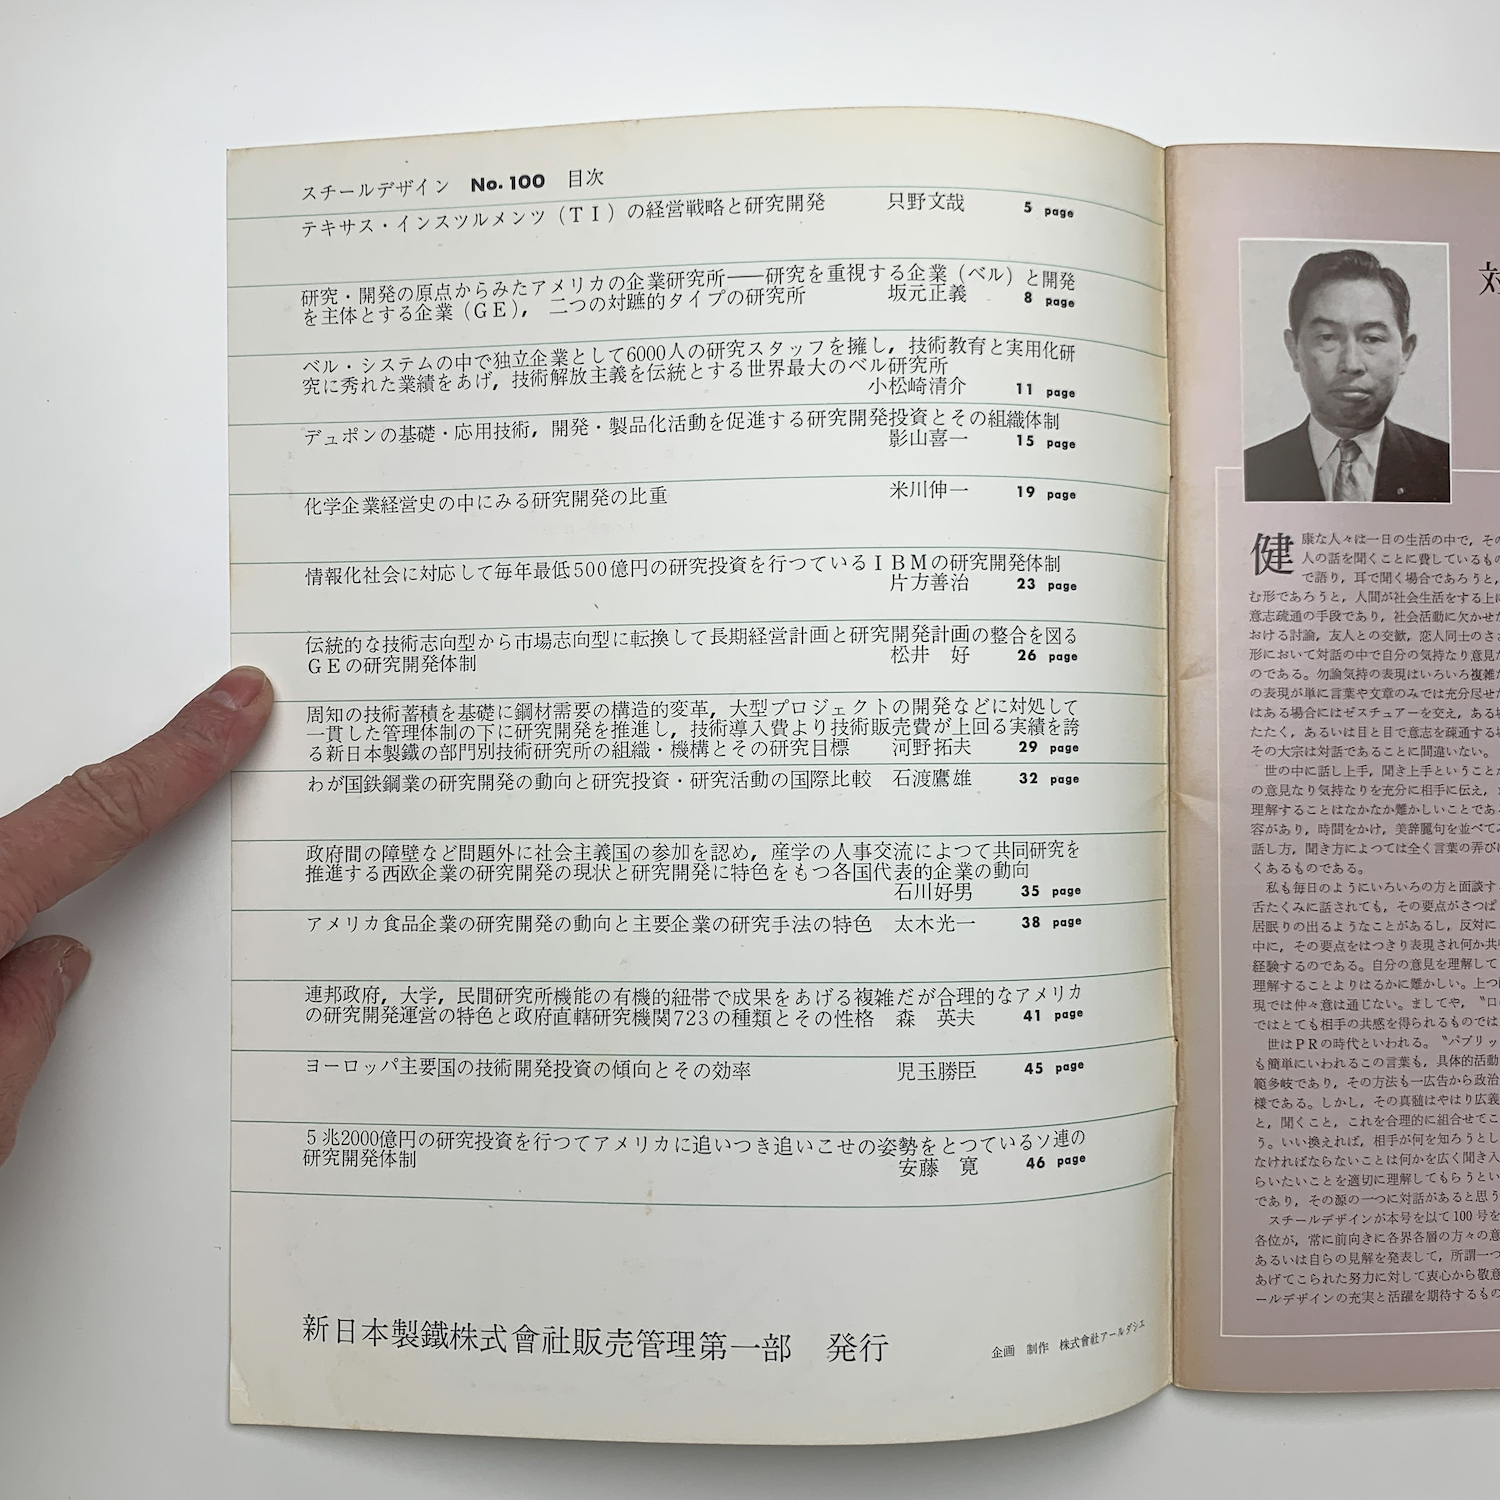 スチールデザイン No.100 目次
テキサス・インスツルメンツ（ＴＩ）の経営戦略と研究開発 只野文哉 5 page
研究・開発の原点からみたアメリカの企業研究所――研究を重視する企業（ベル）と開発
を主体とする企業（ＧＥ）， 二つの対蹠的タイプの研究所 坂元正義 8 page
ベル・システムの中で独立企業として6000人の研究スタッフを擁し，技術教育と実用化研
究に秀れた業績をあげ，技術解放主義を伝統とする世界最大のベル研究所
小松崎清介 11 page
デュポンの基礎・応用技術，開発・製品化活動を促進する研究開発投資とその組織体制
影山喜一 15 page
化学企業経営史の中にみる研究開発の比重 米川伸一 19 page
情報化社会に対応して毎年最低500億円の研究投資を行つているＩＢＭの研究開発体制
片方善治 23 page
伝統的な技術志向型から市場志向型に転換して長期経営計画と研究開発計画の整合を図る
ＧＥの研究開発体制 松井 好 26 page
周知の技術蓄積を基礎に鋼材需要の構造的変革，大型プロジェクトの開発などに対処して
一貫した管理体制の下に研究開発を推進し，技術導入費より技術販売費が上回る実績を誇
る新日本製鐵の部門別技術研究所の組織・機構とその研究目標 河野拓夫 29 page
わが国鉄鋼業の研究開発の動向と研究投資・研究活動の国際比較 石渡鷹雄 32 page
政府間の障壁など問題外に社会主義国の参加を認め，産学の人事交流によつて共同研究を
推進する西欧企業の研究開発の現状と研究開発に特色をもつ各国代表的企業の動向
石川好男 35 page
アメリカ食品企業の研究開発の動向と主要企業の研究手法の特色 太木光一 38 page
連邦政府，大学，民間研究所機能の有機的紐帯で成果をあげる複雑だが合理的なアメリカ
の研究開発運営の特色と政府直轄研究機関723の種類とその性格 森 英夫 41 page
ヨーロッパ主要国の技術開発投資の傾向とその効率 児玉勝臣 45 page
5兆2000億円の研究投資を行つてアメリカに追いつき追いこせの姿勢をとつているソ連の
研究開発体制 安藤 寛 46 page
新日本製鐵株式會社販売管理第一部 発行
企画 制作 株式會社アールダシエ
対
健康な人々は一日の生活の中で，その
人の話を聞くことに費しているもの
で語り，耳で聞く場合であろうと，
む形であろうと，人間が社会生活をする上に
意志疏通の手段であり，社会活動に欠かせな
おける討論，友人との交歓，恋人同士のささ
形において対話の中で自分の気持なり意見な
のである。勿論気持の表現はいろいろ複雑な
の表現が単に言葉や文章のみでは充分尽せな
はある場合にはゼスチュアーを交え，ある場
たたく，あるいは目と目で意志を疎通する場
その大宗は対話であることに間違いない。
世の中に話し上手，聞き上手ということが
の意見なり気持なりを充分に相手に伝え，
理解することはなかなか難かしいことである
容があり，時間をかけ，美辞麗句を並べてみ
話し方，聞き方によつては全く言葉の弄びに
くあるものである。
私も毎日のようにいろいろの方と面談す
舌たくみに話されても，その要点がさつぱ
居眠りの出るようなことがあるし，反対に
中に，その要点をはつきり表現され何か共
経験するのである。自分の意見を理解して
理解することよりはるかに難かしい。上つ
現では仲々意は通じない。ましてや，〝口
ではとても相手の共感を得られるものでは
世はＰＲの時代といわれる。〝パブリッ
も簡単にいわれるこの言葉も，具体的活動
範多岐であり，その方法も一広告から政治
様である。しかし，その真髄はやはり広義
と，聞くこと，これを合理的に組合せてこ
う。いい換えれば，相手が何を知ろうとし
なければならないことは何かを広く聞き入
らいたいことを適切に理解してもらうとい
であり，その源の一つに対話があると思う
スチールデザインが本号を以て100号を
各位が，常に前向きに各界各層の方々の意
あるいは自らの見解を発表して，所謂一つ
あげてこられた努力に対して衷心から敬意
ールデザインの充実と活躍を期待するもの